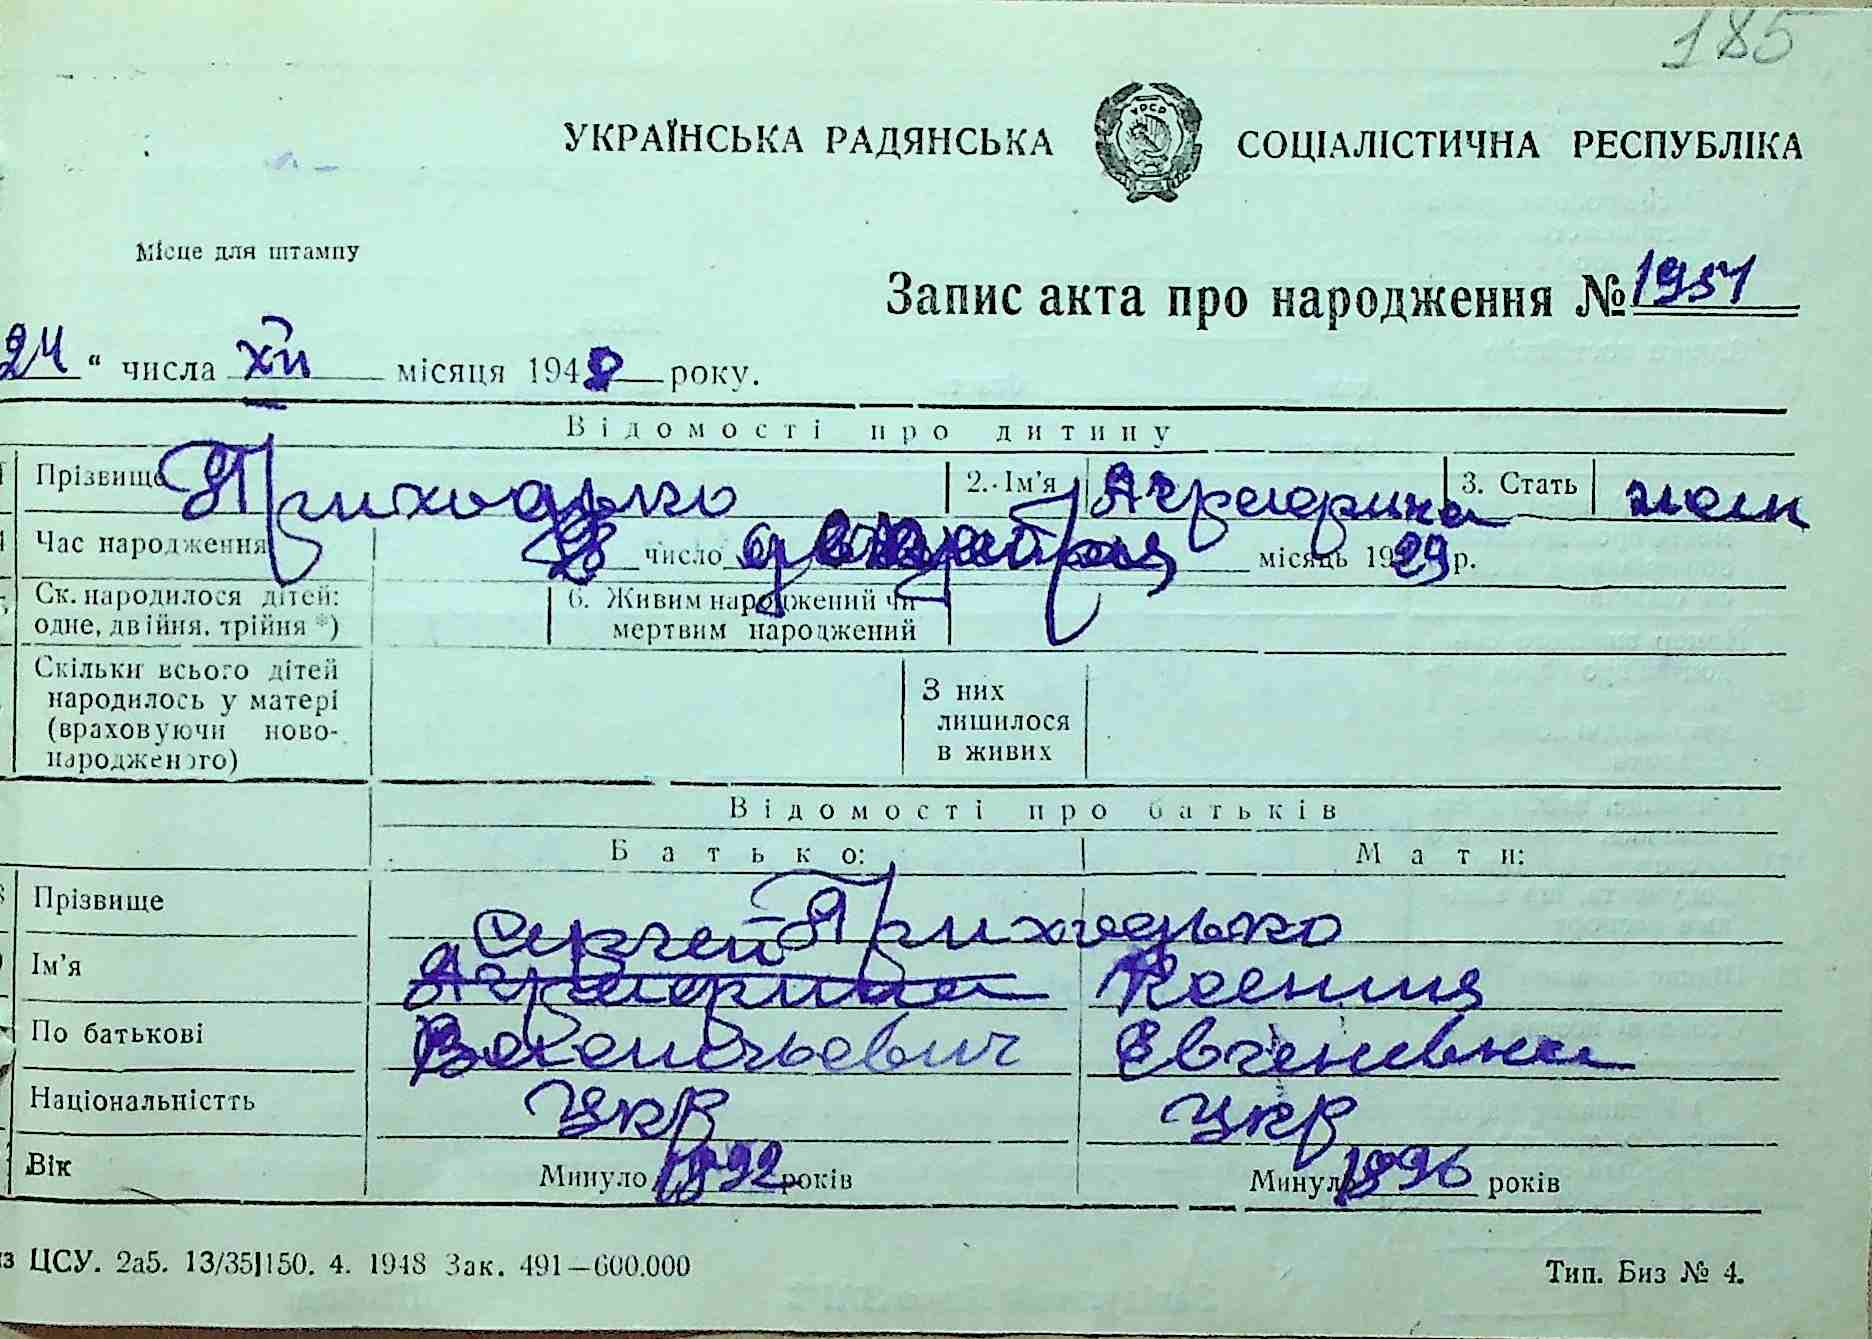 185
УКРАЇНСЬКА РАДЯНСЬКА СОЦІАЛІСТИЧНА РЕСПУБЛІКА
УРСР
Місце для штампу
Запис акта про народження № 1951
24 " числа XII місяця 1948 року.
Відомості про дитину
Прізвище Приходько 2. Ім'я Агрефина 3. Стать жен
Час народження 28 число місяць 1929 р.
Ск. народилося дітей: одне, двійня, трійня *) 6. Живим народжений чи мертвим народжений
Скільки всього дітей народилось у матері (враховуючи ново-народженого) З них лишилося в живих
Відомості про батьків
Батько: Мати:
Прізвище Приходько
Ім'я Сергей Агрефина Ксения
По батькові Евгеневна
Національністть укр укр
Вік Минуло 1892 років Минуло 1896 років
ЦСУ. 2а5. 13/35|150. 4. 1948 Зак. 491—600.000 Тип. Биз № 4.